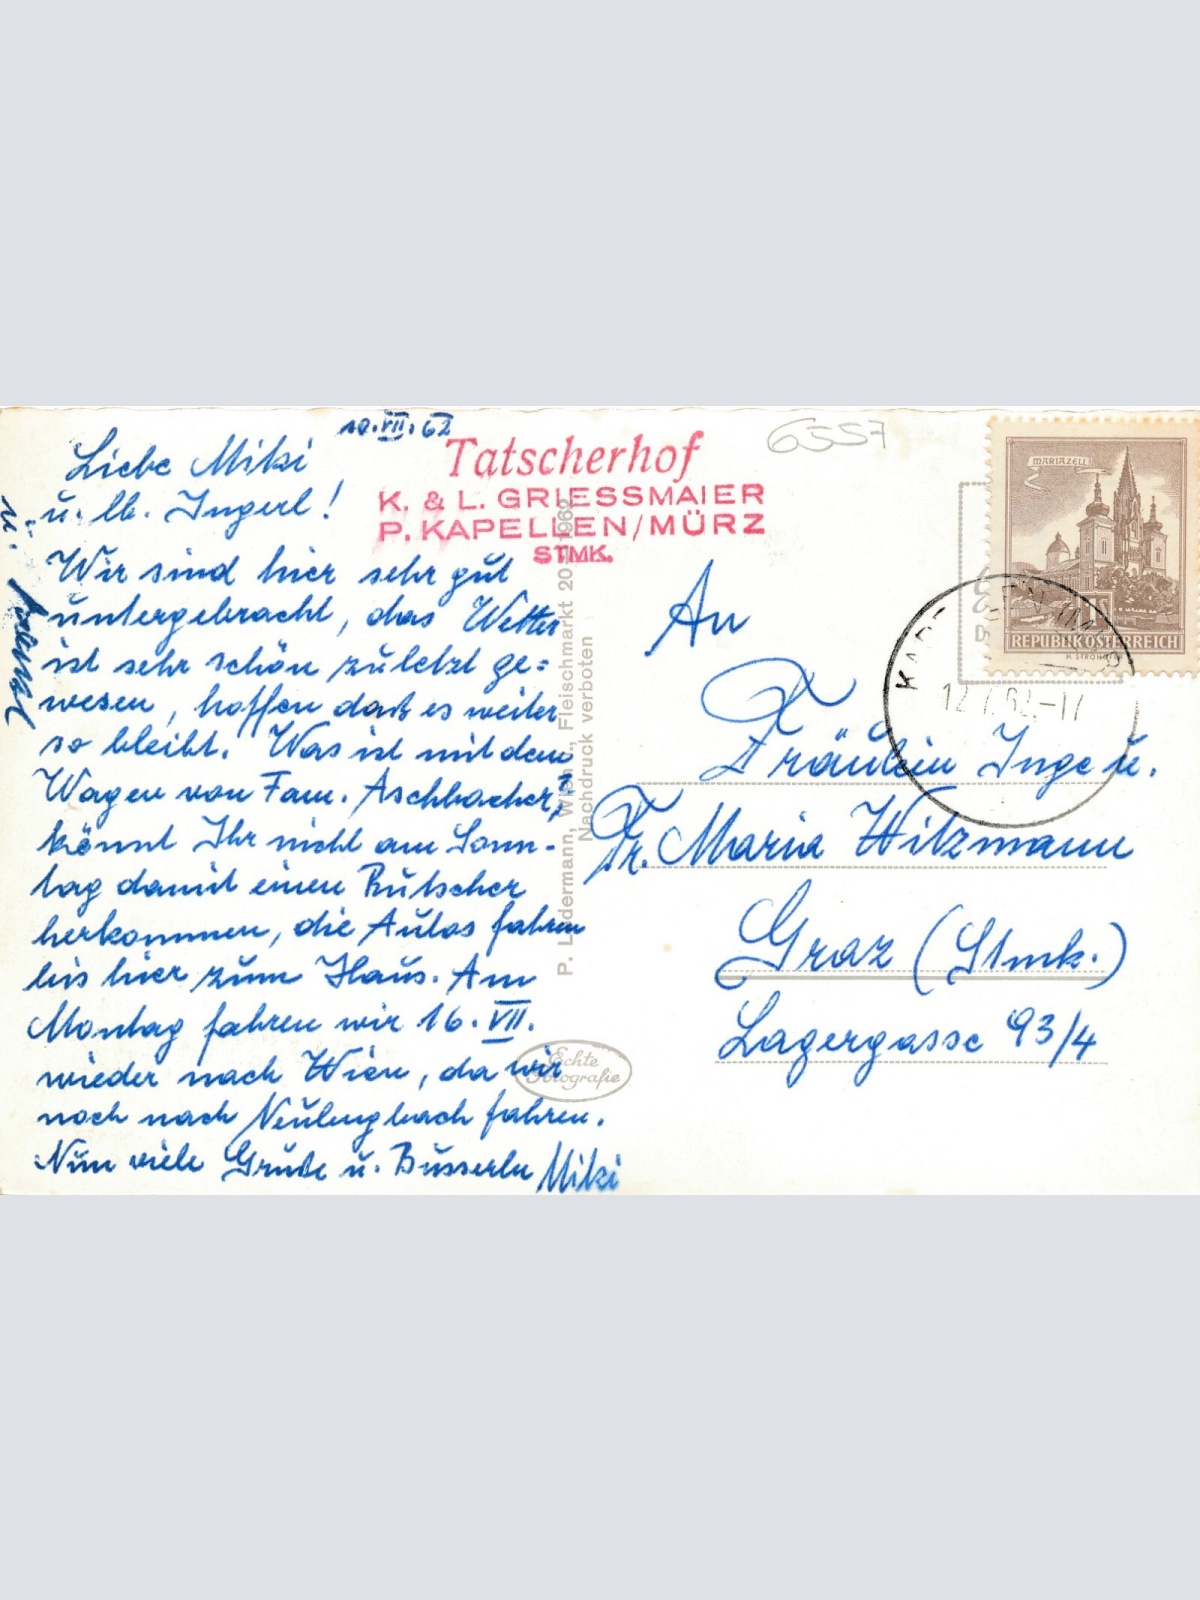 10.VII.62
Liebe Miki
u. lb. Ingerl!
Wir sind hier sehr gut
untergebracht, das Wetter
ist sehr schön zuletzt ge=
wesen, hoffen daß es weiter
so bleibt. Was ist mit dem
Wagen von Fam. Aschbacher?
könnt Ihr nicht am Sonn-
tag damit einen Rutscher
herkommen, die Autos fahren
bis hier zum Haus. Am
Montag fahren wir 16.VII.
wieder nach Wien, da wir
noch nach Neulengbach fahren.
Nun viele Grüße u. Busserln Miki
u.
Tatscherhof
K. & L. GRIESSMAIER
P. KAPELLEN/MÜRZ
STMK.
P. Ledermann, Wien I., Fleischmarkt 20 - 1962
Nachdruck verboten
Echte
Fotografie
6557
MARIAZELL
REPUBLIK ÖSTERREICH
12.7.62.-17
An
Fräulein Inge u.
Fr. Maria Witzmann
Graz (Stmk.)
Lagergasse 93/4